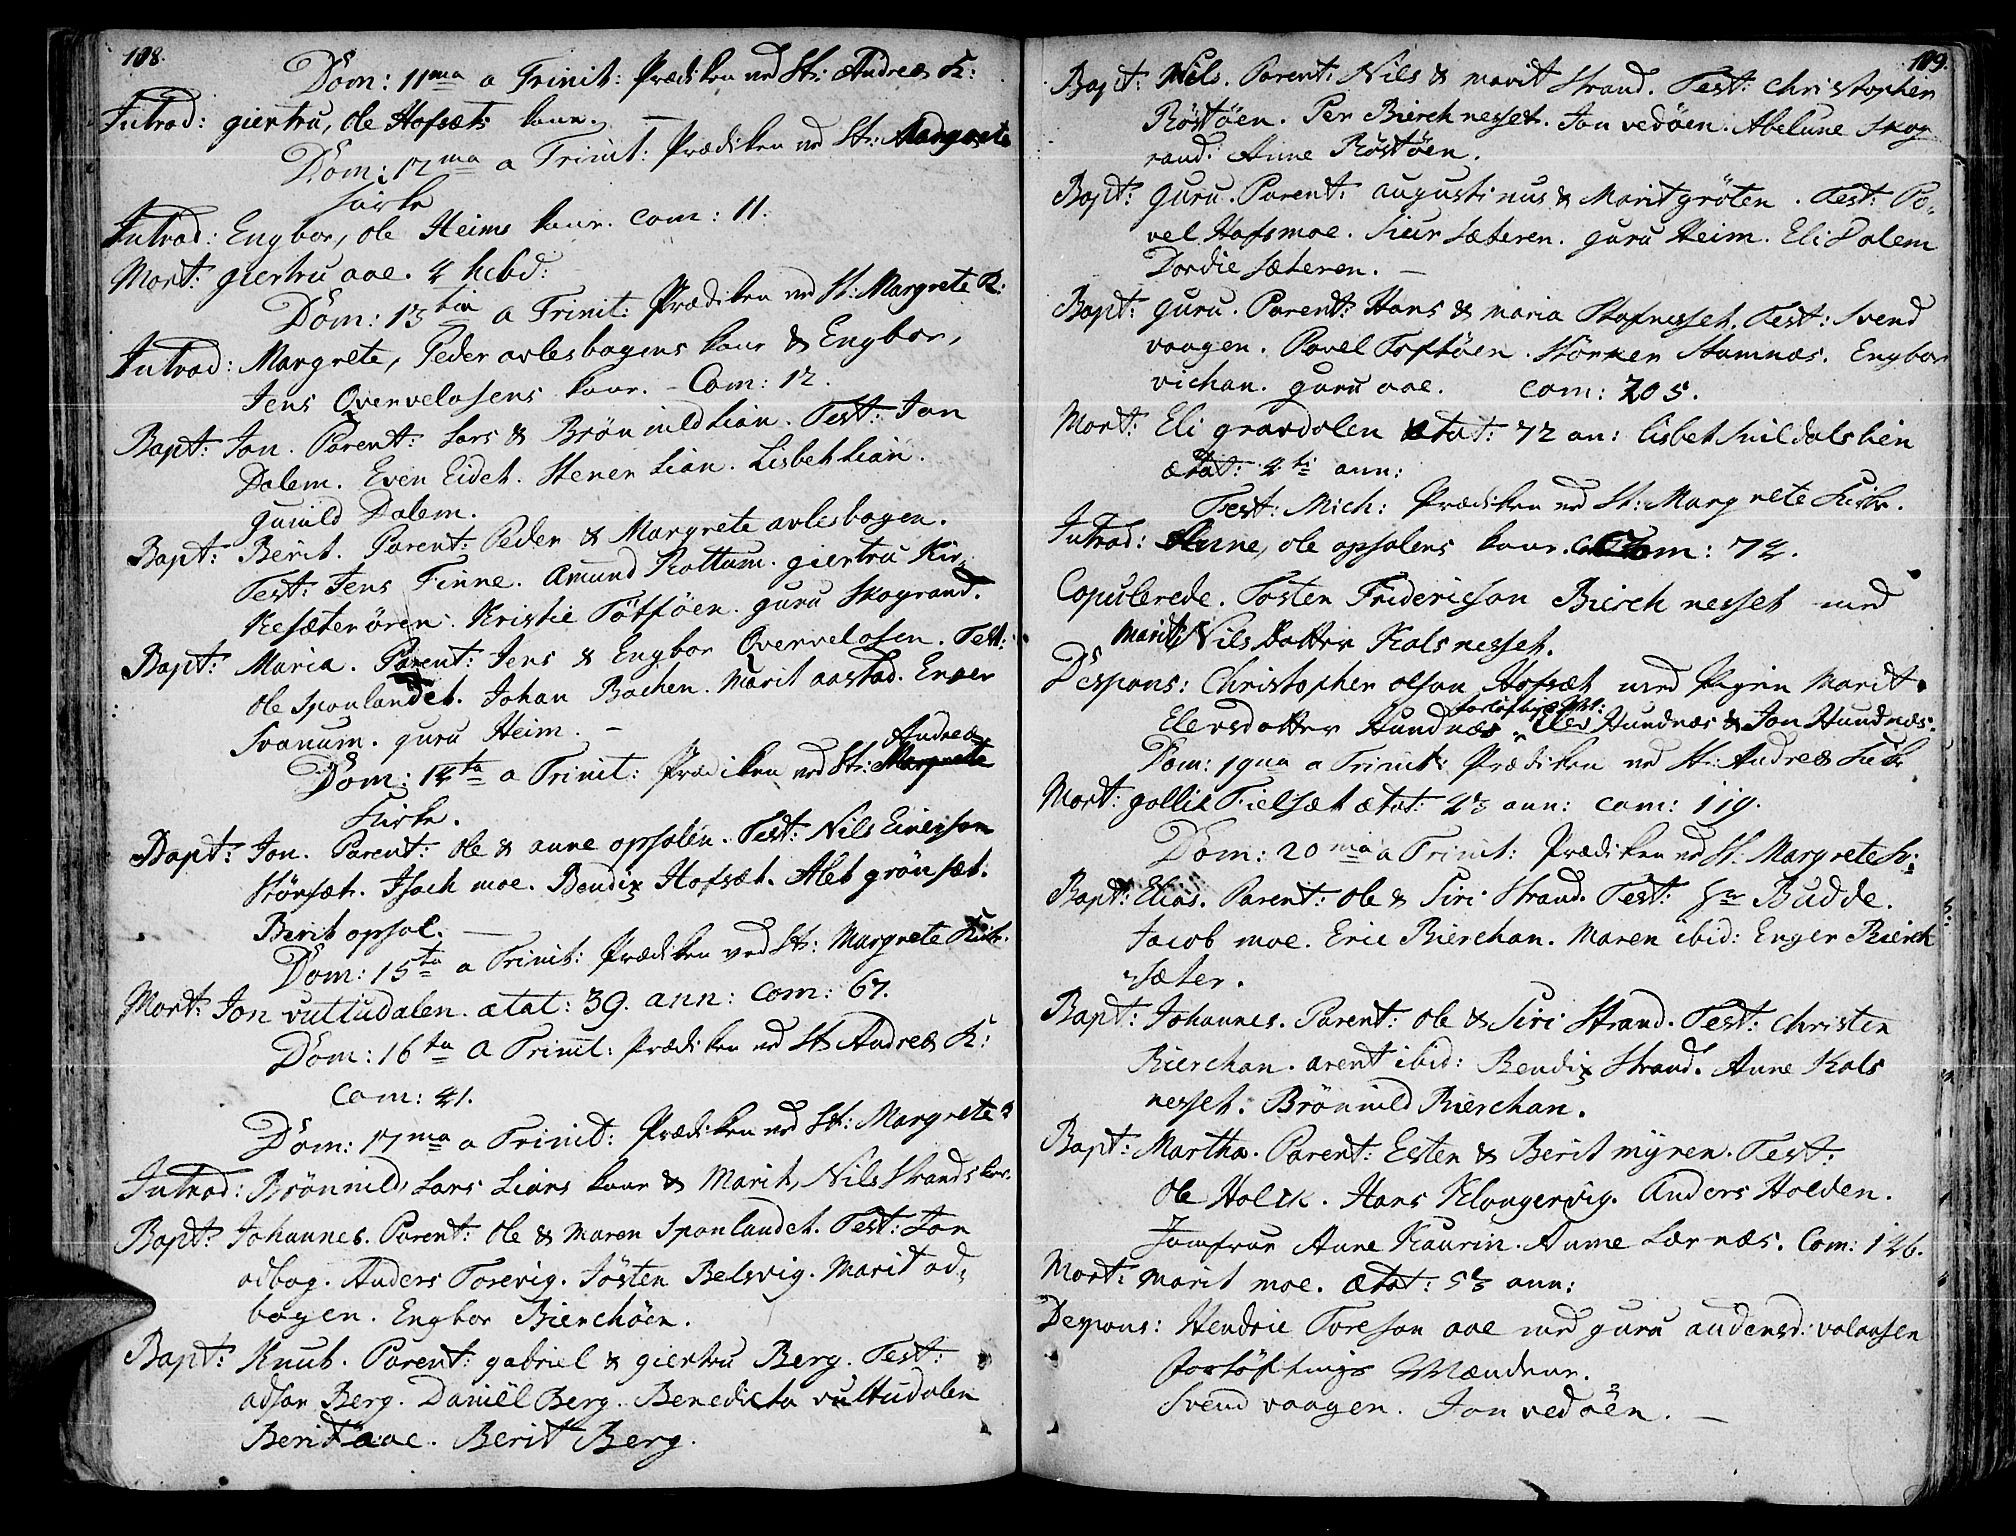 108.
Dom: 11ma a Trinit: Prædiken ved St: Andreæ K:
Introd: giertru, ole Hofsæts kone. —
Dom: 12ma a Trinit: Prædiken ved St: Margrete
Kirke
Introd: Engbor, ole Heims kone. Com: 11.
Mort: giertru aae. 4 hebd:
Dom: 13tia a Trinit: Prædiken ved St: Margrete K:
Introd: Margrete, Peder avlesbogens kone & Engbor,
Jens Overvelosens kone. – Com: 12.
Bapt: Jon. Parent: Lars & Brönnild Lian. Test: Jon
Dalem. Even Eidet. Stener Lian. Lisbet Lian.
Gunild Dalem.
Bapt: Berit. Parent: Peder & Margrete avlesbogen.
Test: Jens Finne. Amund Kottum. giertru Kir-
kesæterören. Kristie Töftöen. guru Skogrand.
Bapt: Maria. Parent: Jens & Engbor Overvelosen. Test:
ole Sponlandet. Johan Bachen. Marit aastad. Enger
Svanum. guru Heim. —
Andreæ
Dom: 14ta a Trinit: Prædiken ved St: Margrete
Kirke.
Bapt: Jon. Parent: ole & anne opsolen. Test: Nils Einerson
Störsæt. Isach moe. Bendix Hofsæt. Alet grönsæt.
Berit opsol. —
Dom: 15ta a Trinit: Prædiken ved St: Margrete Kirk.
Mort: Jon vuttudalen. ætat: 39. ann: Com: 67.
Dom: 16ta a Trinit: Prædiken ved St Andreæ K:
Com: 41.
Dom: 17ma a Trinit: Prædiken ved St: Margrete K
Introd: Brönnild, Lars Lians kone & Marit, Nils Strands kone.
Bapt: Johannes. Parent: ole & Maren Sponlandet. Test: Jon
odbog. Anders Torevig. Tösten Belsvig. Marit od-
bogen. Engbor Bierchöen.
Bapt: Knut. Parent: gabriel & giertru Berg. Test:
adsor Berg. Daniel Berg. Benedicta vuttudalen
Berit aae. Berit Berg.
109.
Bapt: Nils. Parent: Nils & marit Strand. Test: Christopher
Röstöen. Per Bierchnesset. Jon vedöen. Abelune Skog
rand. Anne Röstöen.
Bapt: Guru. Parent: augustinus & Marit gröten. Test: Po-
vel Hofsmoe. Siur Sæteren. guru Heim. Eli Dalem
Dordie Sæteren. —
Bapt: Guru. Parent: Hans & maria Stafnesset. Test: Svend
vaagen. Povel Toftöen. Störker Stamnæs. Engbor
vichan. guru aae. Com: 205.
Mort: Eli gravdolen ætat: 72 an: lisbet Snildalslien
ætat: 4ti ann:
Fest: Mich: Prædiken ved St: Margrete Kirke.
Introd: Anne, ole opsolens kone. Com: 74.
Copulerede. Tosten Fridericson Bierchnesset med
Marit Nilsdatter Kalsnesset.
Despons: Christopher olson Hofsæt med Pigen Marit
forlöftnings M:
Elevsdatter Hundnæs. Elev Hundnæs & Jon Hundnæs.
Dom: 19na a Trinit: Prædiken ved St: Andreæ Kirke
Mort: gollik Fielsæt ætat: 43 ann: com: 119.
Dom: 20ma a Trinit: Prædiken ved St: Margrete K:
Bapt: Elias. Parent: ole & Siri Strand. Test: Hr Budde.
Jacob moe. Eric Bierchan. Maren ibid: Enger Bierch
sæter.
Bapt: Johannes. Parent: ole & Siri Strand. Test: Christen
Bierchan. arent ibid: Bendix Strand. Anne Kals
nesset. Brönnild Bierchan.
Bapt: Martha. Parent: Esten & Berit myren. Test:
ole Holck. Hans Klongervig. Anders Holden.
Jomfrue Anne Kaurin. Anne Lærnæs. Com: 126.
Mort: marit moe. ætat: 53 ann:
Despons: Hendric Toreson aae med guru andersd: volaasen
Forlöftnings Mændene.
Svend vaagen. Jon vedöen. —